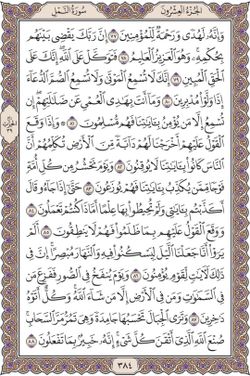 الجزء العشرون
سورة النمل
وَإِنَّهُ لَهُدًى وَرَحْمَةٌ لِّلْمُؤْمِنِينَ ٧٧ إِنَّ رَبَّكَ يَقْضِى بَيْنَهُم
بِحُكْمِهِ وَهُوَ الْعَزِيزُ الْعَلِيمُ ٧٨ فَتَوَكَّلْ عَلَى اللَّهِ إِنَّكَ عَلَى
الْحَقِّ الْمُبِينِ ٧٩ إِنَّكَ لَا تُسْمِعُ الْمَوْتَى وَلَا تُسْمِعُ الصُّمَّ الدُّعَاءَ
إِذَا وَلَّوْا مُدْبِرِينَ ٨٠ وَمَا أَنتَ بِهَادِى الْعُمْىِ عَن ضَلَالَتِهِمْ إِن
تُسْمِعُ إِلَّا مَن يُؤْمِنُ بِآيَاتِنَا فَهُم مُّسْلِمُونَ ٨١ وَإِذَا
وَقَعَ الْقَوْلُ عَلَيْهِمْ أَخْرَجْنَا لَهُمْ دَابَّةً مِّنَ الْأَرْضِ تُكَلِّمُهُمْ أَنَّ
النَّاسَ كَانُوا بِآيَاتِنَا لَا يُوقِنُونَ ٨٢ وَيَوْمَ نَحْشُرُ مِن كُلِّ أُمَّةٍ
فَوْجًا مِّمَّن يُكَذِّبُ بِآيَاتِنَا فَهُمْ يُوزَعُونَ ٨٣ حَتَّى إِذَا جَاءُو قَالَ
أَكَذَّبْتُم بِآيَاتِى وَلَمْ تُحِيطُوا بِهَا عِلْمًا أَمَّاذَا كُنتُمْ تَعْمَلُونَ ٨٤
وَوَقَعَ الْقَوْلُ عَلَيْهِم بِمَا ظَلَمُوا فَهُمْ لَا يَنطِقُونَ ٨٥ أَلَمْ
يَرَوْا أَنَّا جَعَلْنَا اللَّيْلَ لِيَسْكُنُوا فِيهِ وَالنَّهَارَ مُبْصِرًا إِنَّ فِى
ذَلِكَ لَآيَاتٍ لِّقَوْمٍ يُؤْمِنُونَ ٨٦ وَيَوْمَ يُنفَخُ فِى الصُّورِ فَفَزِعَ مَن
فِى السَّمَاوَاتِ وَمَن فِى الْأَرْضِ إِلَّا مَن شَاءَ اللَّهُ وَكُلٌّ أَتَوْهُ
دَاخِرِينَ ٨٧ وَتَرَى الْجِبَالَ تَحْسَبُهَا جَامِدَةً وَهِىَ تَمُرُّ مَرَّ السَّحَابِ
صُنْعَ اللَّهِ الَّذِى أَتْقَنَ كُلَّ شَىْءٍ إِنَّهُ خَبِيرٌ بِمَا تَفْعَلُونَ ٨٨
٣٨٤